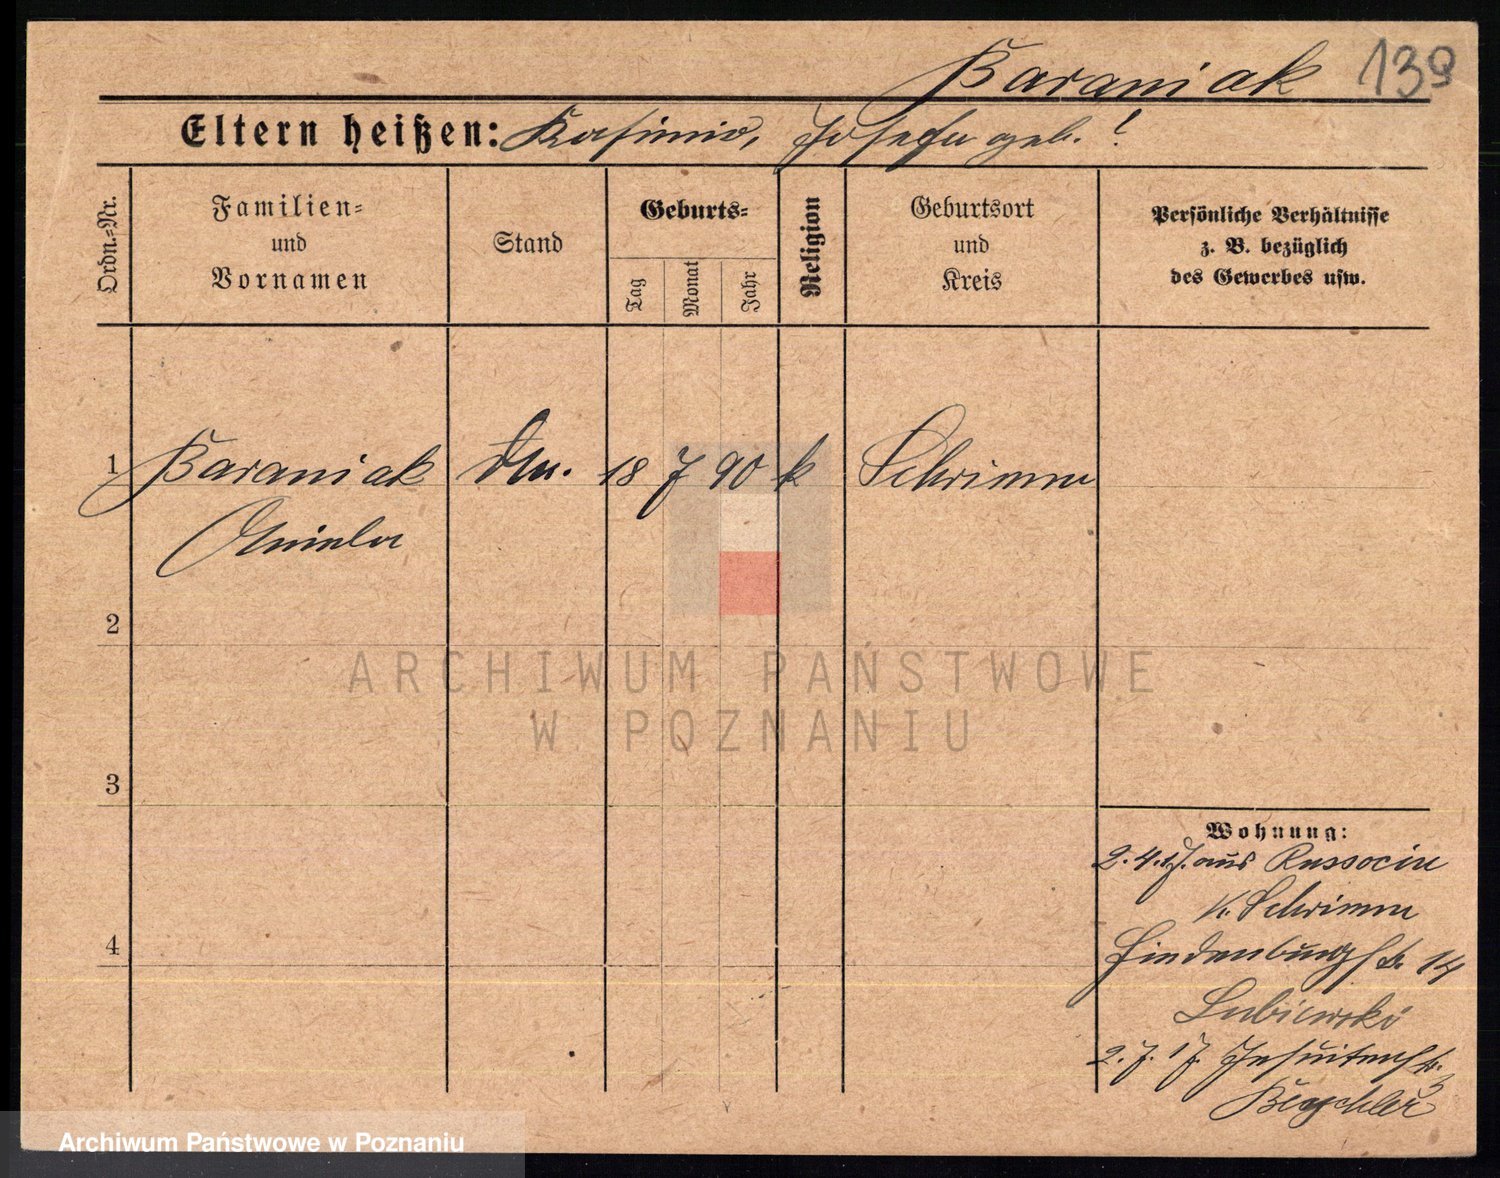 Baraniak 139
Eltern heißen: Kasimir, Josefa geb. ?
Ordn.=Nr.
Familien=
und
Vornamen
Stand
Geburts=
Tag
Monat
Jahr
Religion
Geburtsort
und
Kreis
Persönliche Verhältnisse
z. B. bezüglich
des Gewerbes usw.
1 Baraniak 18 7 90 k Schrimm
Aniela
2
ARCHIWUM PAŃSTWOWE
W POZNANIU
3
Wohnung:
2. 4. 17. aus Russocin
K. Schrimm
4
Hindenburgstr. 14
Lubiewski
2. 7. 17. Jesuitenstr.
Archiwum Państwowe w Poznaniu